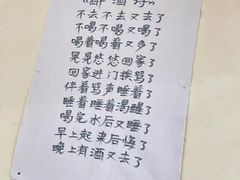 《醉酒诗》
不去不去又去了
不喝不喝又喝了
喝着喝着又多了
晃晃悠悠回家了
回家进门挨骂了
伴着骂声睡着了
睡着睡着渴醒了
喝完水后又睡了
早上起来后悔了
晚上有酒又去了